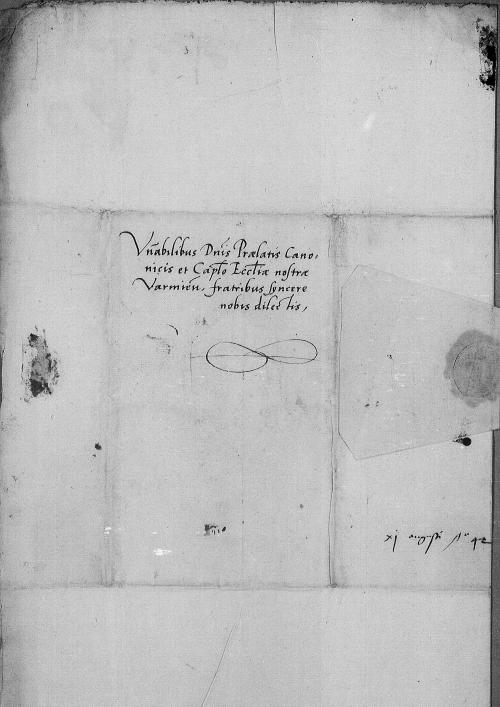 Vn̄abilibus Dn̄is Prælatis Cano-
nicis et Cap̄lo Eccl̄iæ nostræ
Varmień. fratribus syncere
nobis dilectis,
xj augusti Aº 42